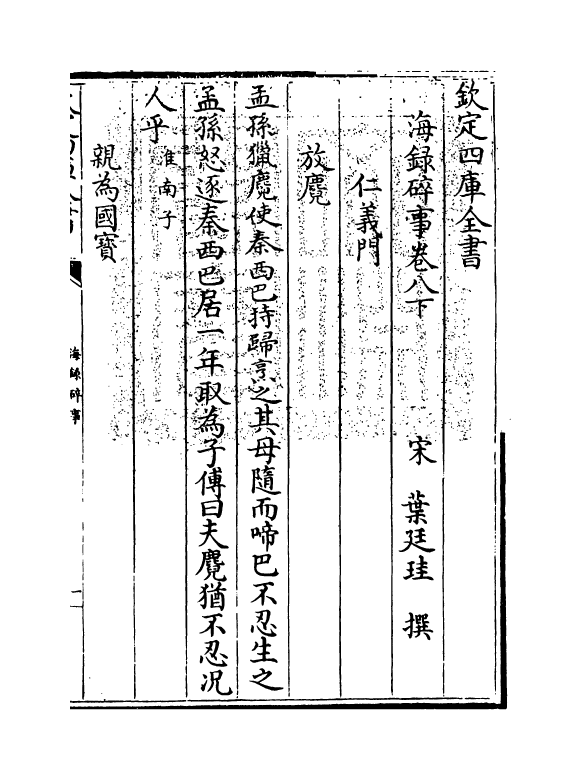 欽定四庫全書
海録碎事卷八下　宋　葉廷珪　撰
仁義門
放麑
孟孫獵麑使秦西巴持歸烹之其母隨而啼巴不忍生之
孟孫怒逐秦西巴居一年取為子傅曰夫麑猶不忍况
人乎淮南子
親為國寳
海録碎事
一